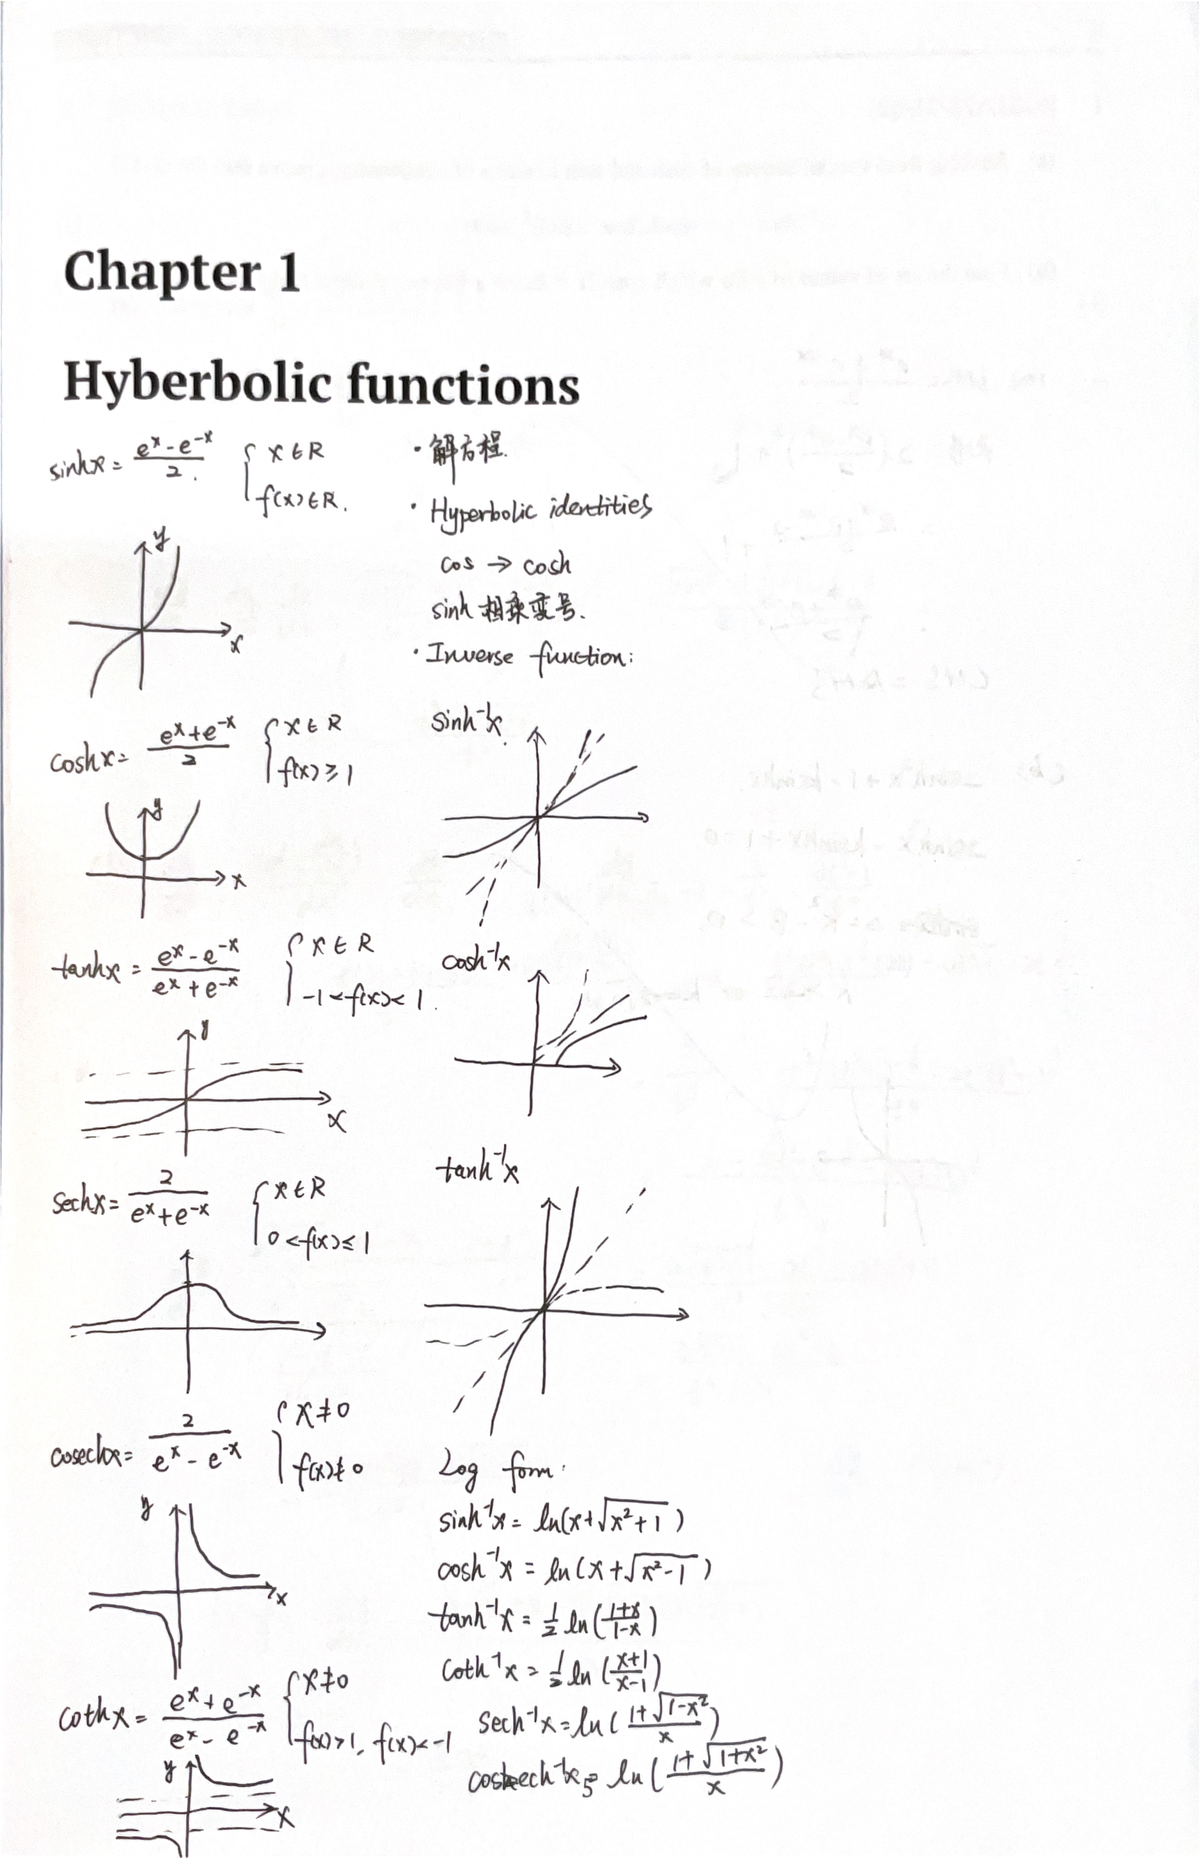 Chapter 1
Hyberbolic functions
sinhx = (e^x - e^-x)/2. { x ∈ R
f(x) ∈ R.
y
x
coshx = (e^x + e^-x)/2 { x ∈ R
f(x) ≥ 1
y
x
tanhx = (e^x - e^-x)/(e^x + e^-x) { x ∈ R
-1 < f(x) < 1.
y
x
sechx = 2/(e^x + e^-x) { x ∈ R
0 < f(x) ≤ 1
cosechx = 2/(e^x - e^-x) { x ≠ 0
f(x) ≠ 0
y
x
cothx = (e^x + e^-x)/(e^x - e^-x) { x ≠ 0
f(x) > 1, f(x) < -1
y
x
· 解方程.
· Hyperbolic identities
cos → cosh
sinh 相乘变号.
· Inverse function:
sinh^-1 x.
cosh^-1 x
tanh^-1 x
Log form:
sinh^-1 x = ln(x + √(x² + 1))
cosh^-1 x = ln(x + √(x² - 1))
tanh^-1 x = 1/2 ln((1+x)/(1-x))
coth^-1 x = 1/2 ln((x+1)/(x-1))
sech^-1 x = ln((1 + √(1-x²))/x)
ech^-1 x = ln((1 + √(1+x²))/x)
5